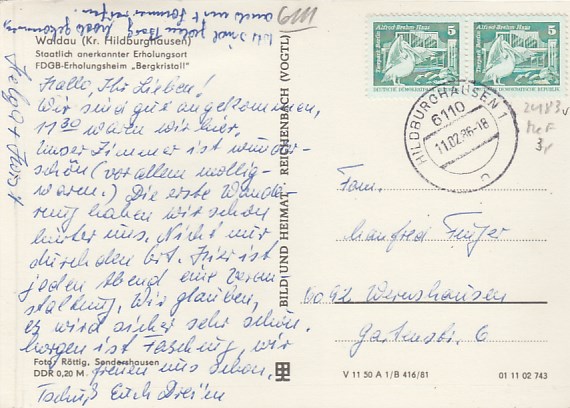 Waldau (Kr. Hildburghausen)
Staatlich anerkannter Erholungsort
FDGB-Erholungsheim „Bergkristall"
Hallo, Ihr Lieben!
Wir sind gut angekommen,
11 30 waren wir hier,
unser Zimmer ist wunder-
schön (vor allem mollig-
warm.) Die erste Wande-
rung haben wir schon
hinter uns. Nicht nur
durch den Ort. Hier ist
jeden Abend eine Veran-
staltung. Wir glauben,
es wird sicher sehr schön.
Morgen ist Fasching, wir
freuen uns schon.
Tschüß Euch Dreien
Helga + Horst
Foto: Röttig, Sondershausen
DDR 0,20 M
BILD UND HEIMAT REICHENBACH (VOGTL)
6111
Alfred Brehm Haus
Tierpark Berlin
5
DEUTSCHE DEMOKRATISCHE REPUBLIK
Alfred Brehm Haus
Tierpark Berlin
5
DEUTSCHE DEMOKRATISCHE REPUBLIK
HILDBURGHAUSEN 1
6110
11.02.86-18
n
2483v
MeF
Fam.
Manfred
Wernshausen
Gartenstr. 6
V 11 50 A 1/B 416/81
01 11 02 743